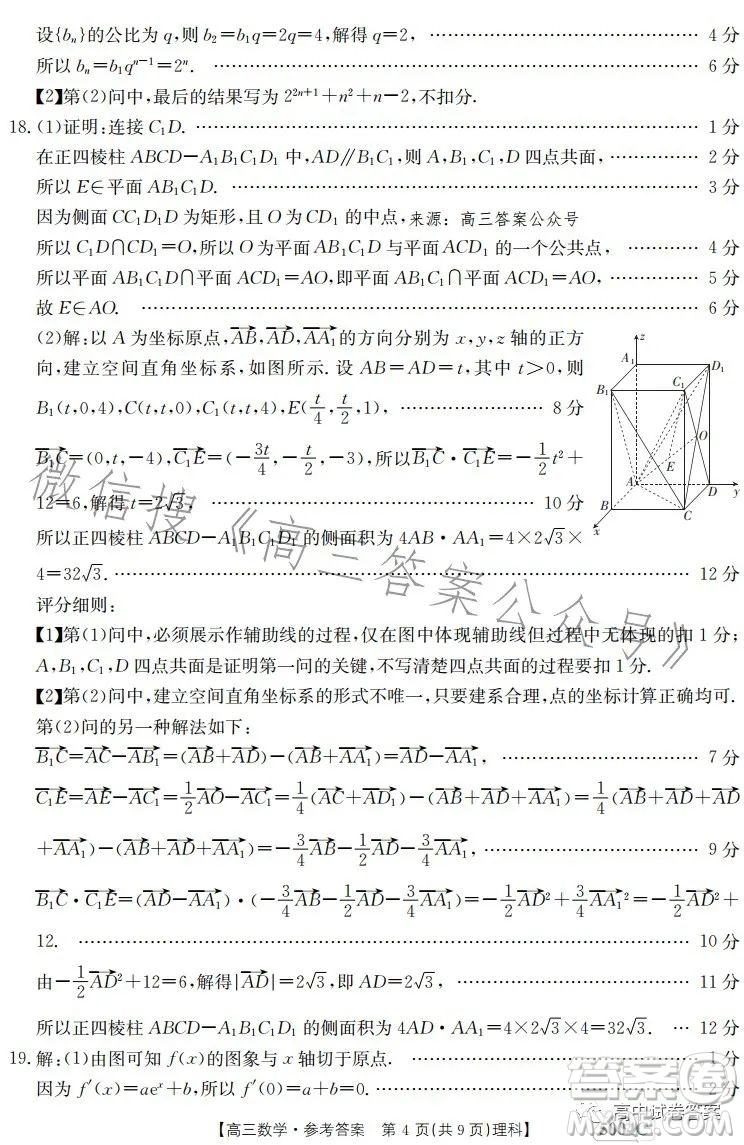 设{bₙ}的公比为 q,则 b₂=b₁q=2q=4,解得 q=2, …… 4 分
所以 bₙ=b₁qⁿ⁻¹=2ⁿ. …… 6 分
【2】第(2)问中,最后的结果写为 2²ⁿ⁺¹+n²+n−2,不扣分.
18.(1)证明:连接 C₁D. …… 1 分
在正四棱柱 ABCD−A₁B₁C₁D₁ 中,AD∥B₁C₁,则 A,B₁,C₁,D 四点共面, …… 2 分
所以 E∈平面 AB₁C₁D. …… 3 分
因为侧面 CC₁D₁D 为矩形,且 O 为 CD₁ 的中点, 来源：高三答案公众号
所以 C₁D∩CD₁=O,所以 O 为平面 AB₁C₁D 与平面 ACD₁ 的一个公共点, …… 4 分
所以平面 AB₁C₁D∩平面 ACD₁=AO,即平面 AB₁C₁∩平面 ACD₁=AO, …… 5 分
故 E∈AO. …… 6 分
(2)解:以 A 为坐标原点,$\overrightarrow{AB}$,$\overrightarrow{AD}$,$\overrightarrow{AA_1}$的方向分别为 x,y,z 轴的正方
向,建立空间直角坐标系,如图所示. 设 AB=AD=t,其中 t>0,则
B₁(t,0,4),C(t,t,0),C₁(t,t,4),E($\frac{t}{4}$,$\frac{t}{2}$,1), …… 8 分
$\overrightarrow{B_1C}$=(0,t,−4),$\overrightarrow{C_1E}$=(−$\frac{3t}{4}$,−$\frac{t}{2}$,−3),所以$\overrightarrow{B_1C}$·$\overrightarrow{C_1E}$=−$\frac{1}{2}$t²+
12=6,解得 t=2√3, …… 10 分
所以正四棱柱 ABCD−A₁B₁C₁D₁ 的侧面积为 4AB·AA₁=4×2√3×
4=32√3. …… 12 分
z
A₁
D₁
B₁
C₁
O
E
A
B
D
y
C
x
评分细则:
【1】第(1)问中,必须展示作辅助线的过程,仅在图中体现辅助线但过程中无体现的扣 1 分;
A,B₁,C₁,D 四点共面是证明第一问的关键,不写清楚四点共面的过程要扣 1 分.
【2】第(2)问中,建立空间直角坐标系的形式不唯一,只要建系合理,点的坐标计算正确均可.
第(2)问的另一种解法如下:
$\overrightarrow{B_1C}$=$\overrightarrow{AC}$−$\overrightarrow{AB_1}$=($\overrightarrow{AB}$+$\overrightarrow{AD}$)−($\overrightarrow{AB}$+$\overrightarrow{AA_1}$)=$\overrightarrow{AD}$−$\overrightarrow{AA_1}$, …… 7 分
$\overrightarrow{C_1E}$=$\overrightarrow{AE}$−$\overrightarrow{AC_1}$=$\frac{1}{2}\overrightarrow{AO}$−$\overrightarrow{AC_1}$=$\frac{1}{4}$($\overrightarrow{AC}$+$\overrightarrow{AD_1}$)−($\overrightarrow{AB}$+$\overrightarrow{AD}$+$\overrightarrow{AA_1}$)=$\frac{1}{4}$($\overrightarrow{AB}$+$\overrightarrow{AD}$+$\overrightarrow{AD}$
+$\overrightarrow{AA_1}$)−($\overrightarrow{AB}$+$\overrightarrow{AD}$+$\overrightarrow{AA_1}$)=−$\frac{3}{4}\overrightarrow{AB}$−$\frac{1}{2}\overrightarrow{AD}$−$\frac{3}{4}\overrightarrow{AA_1}$, …… 9 分
$\overrightarrow{B_1C}$·$\overrightarrow{C_1E}$=($\overrightarrow{AD}$−$\overrightarrow{AA_1}$)·(−$\frac{3}{4}\overrightarrow{AB}$−$\frac{1}{2}\overrightarrow{AD}$−$\frac{3}{4}\overrightarrow{AA_1}$)=−$\frac{1}{2}\overrightarrow{AD}$²+$\frac{3}{4}\overrightarrow{AA_1}$²=−$\frac{1}{2}\overrightarrow{AD}$²+
12. …… 10 分
由−$\frac{1}{2}\overrightarrow{AD}$²+12=6,解得|$\overrightarrow{AD}$|=2√3,即 AD=2√3, …… 11 分
所以正四棱柱 ABCD−A₁B₁C₁D₁ 的侧面积为 4AD·AA₁=4×2√3×4=32√3. … 12 分
19.解:(1)由图可知 f(x)的图象与 x 轴切于原点. …… 1 分
因为 f′(x)=aeˣ+b,所以 f′(0)=a+b=0. …… 2 分
【高三数学·参考答案 第 4 页(共 9 页)理科】
微信搜《高三答案公众号》
答案圈
高中试卷答案